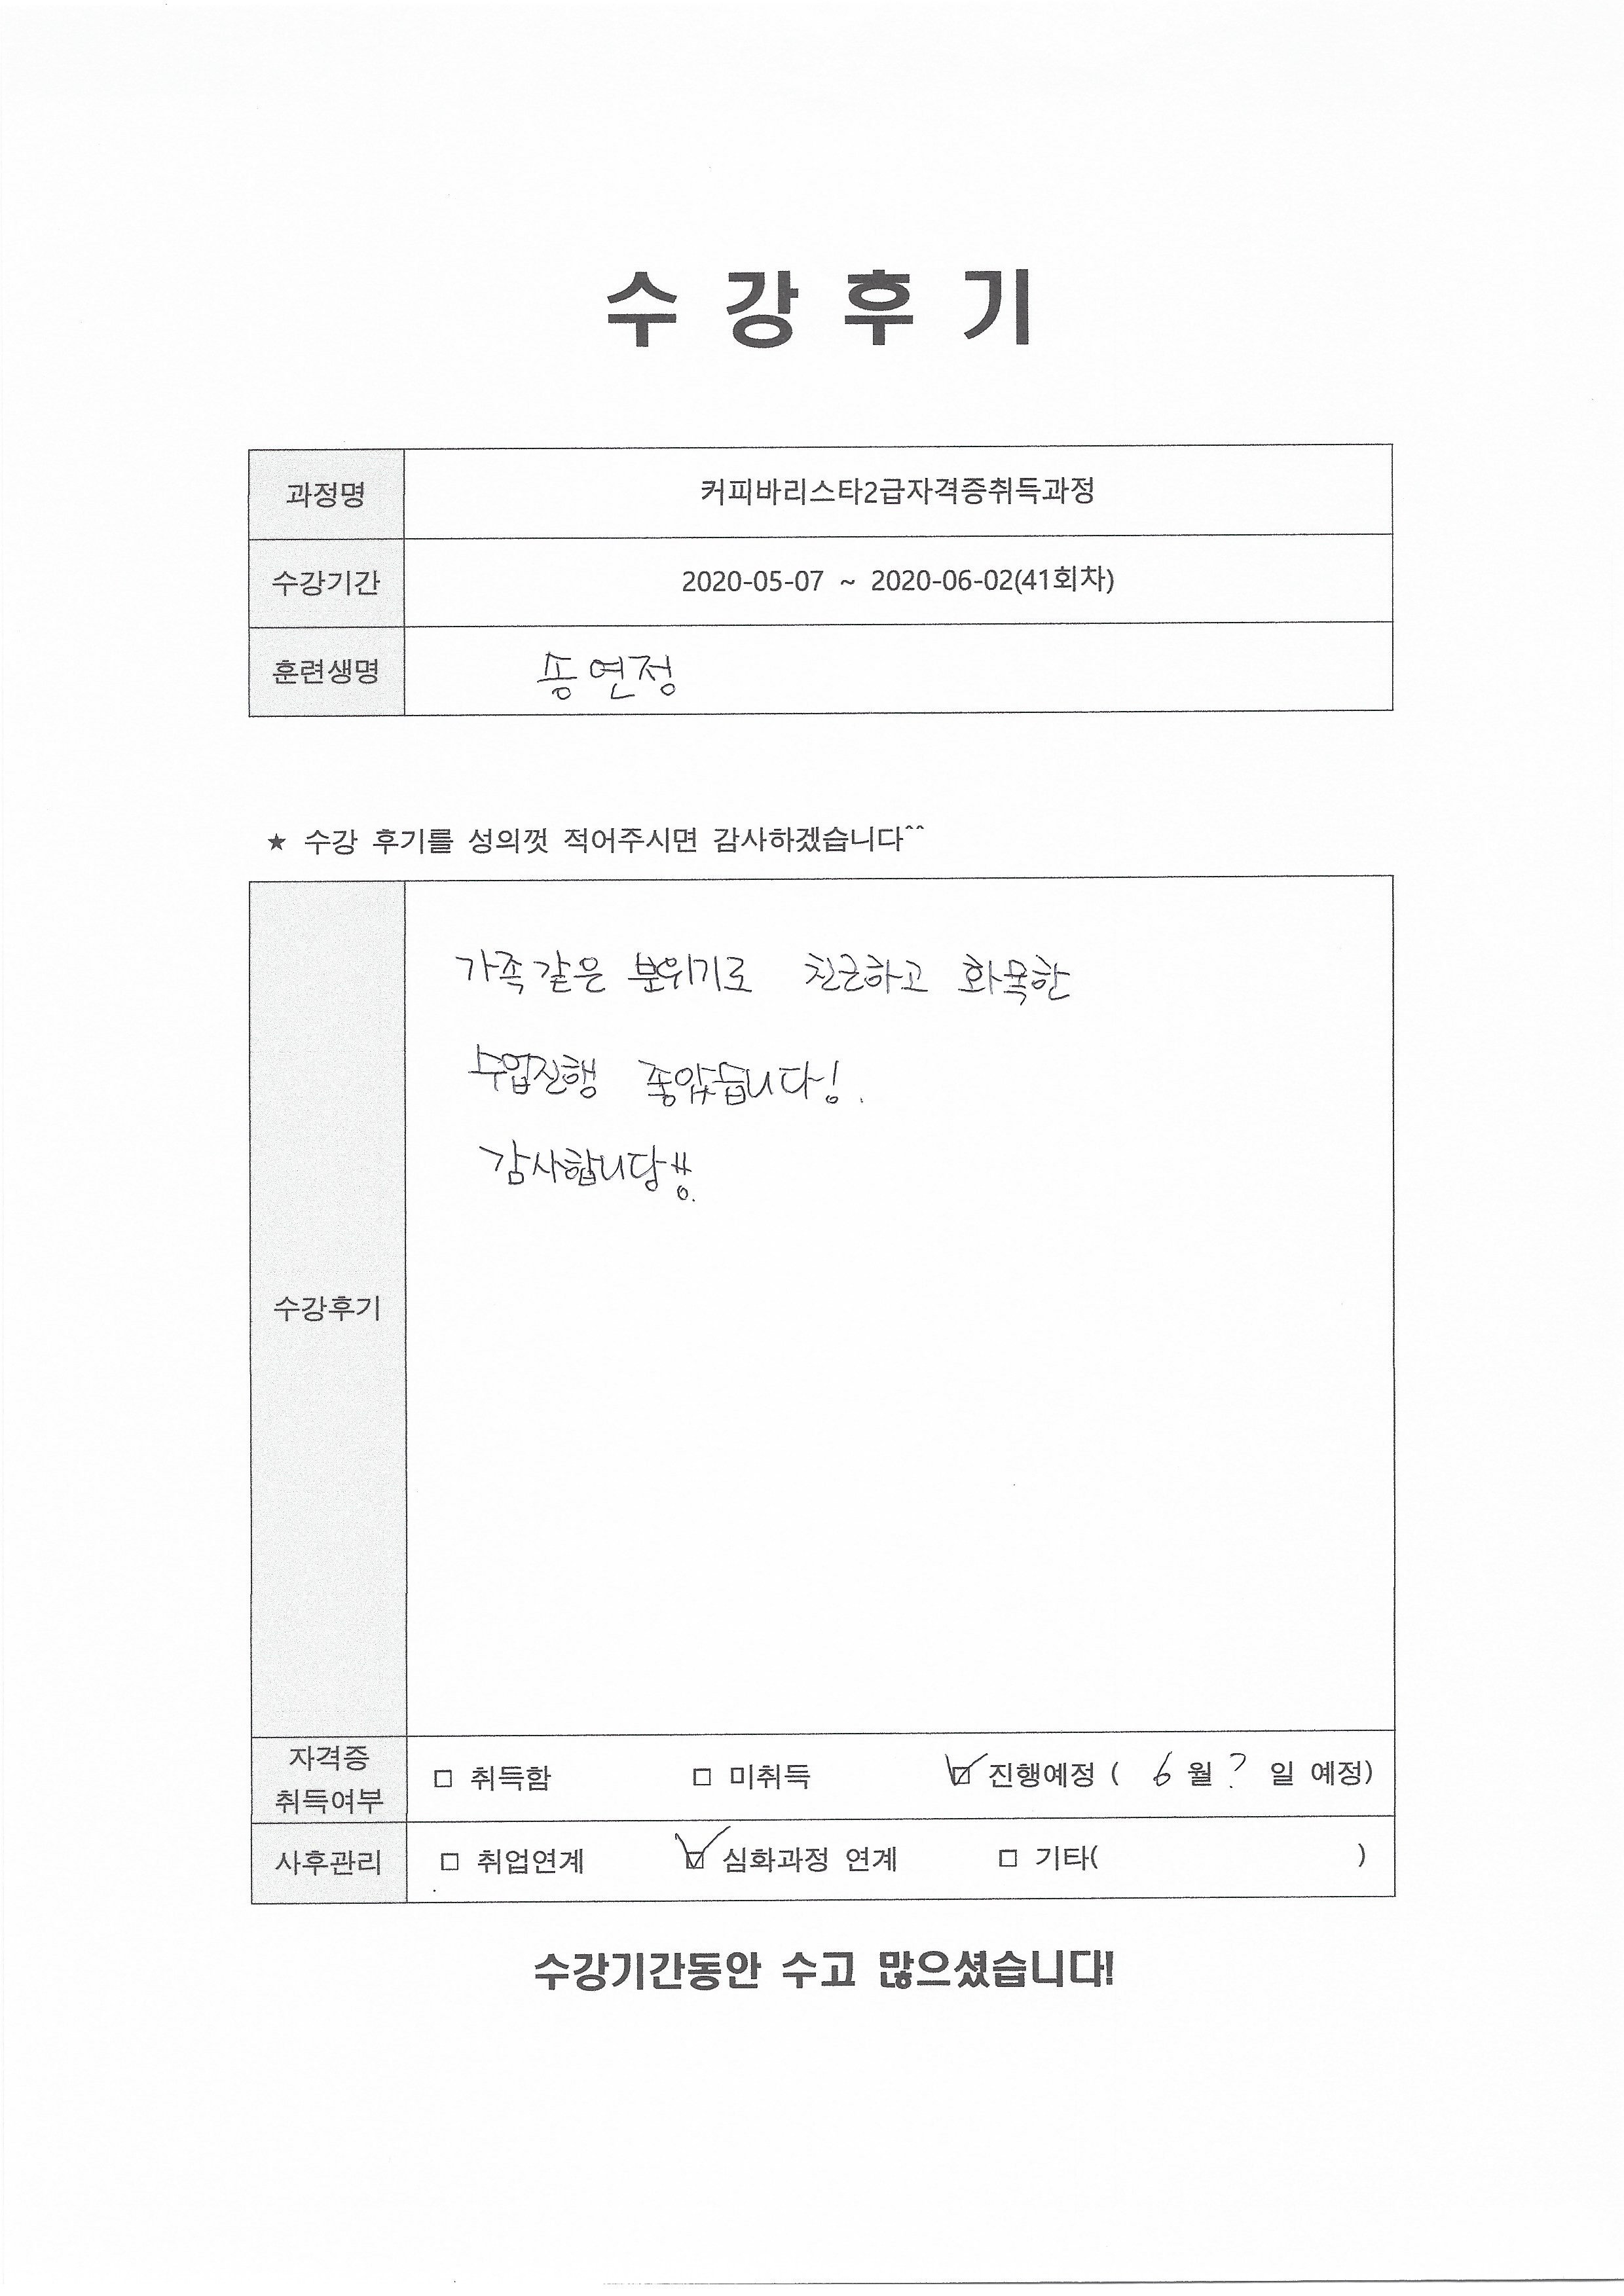 수 강 후 기
과정명 커피바리스타2급자격증취득과정
수강기간 2020-05-07 ~ 2020-06-02(41회차)
훈련생명 송연정
★ 수강 후기를 성의껏 적어주시면 감사하겠습니다^^
가족같은 분위기로 친근하고 화목한
수업진행 좋았습니다!.
감사합니당!!.
수강후기
자격증
취득여부
□ 취득함 □ 미취득 ☑ 진행예정 ( 6 월 ? 일 예정)
사후관리 □ 취업연계 ☑ 심화과정 연계 □ 기타( )
수강기간동안 수고 많으셨습니다!